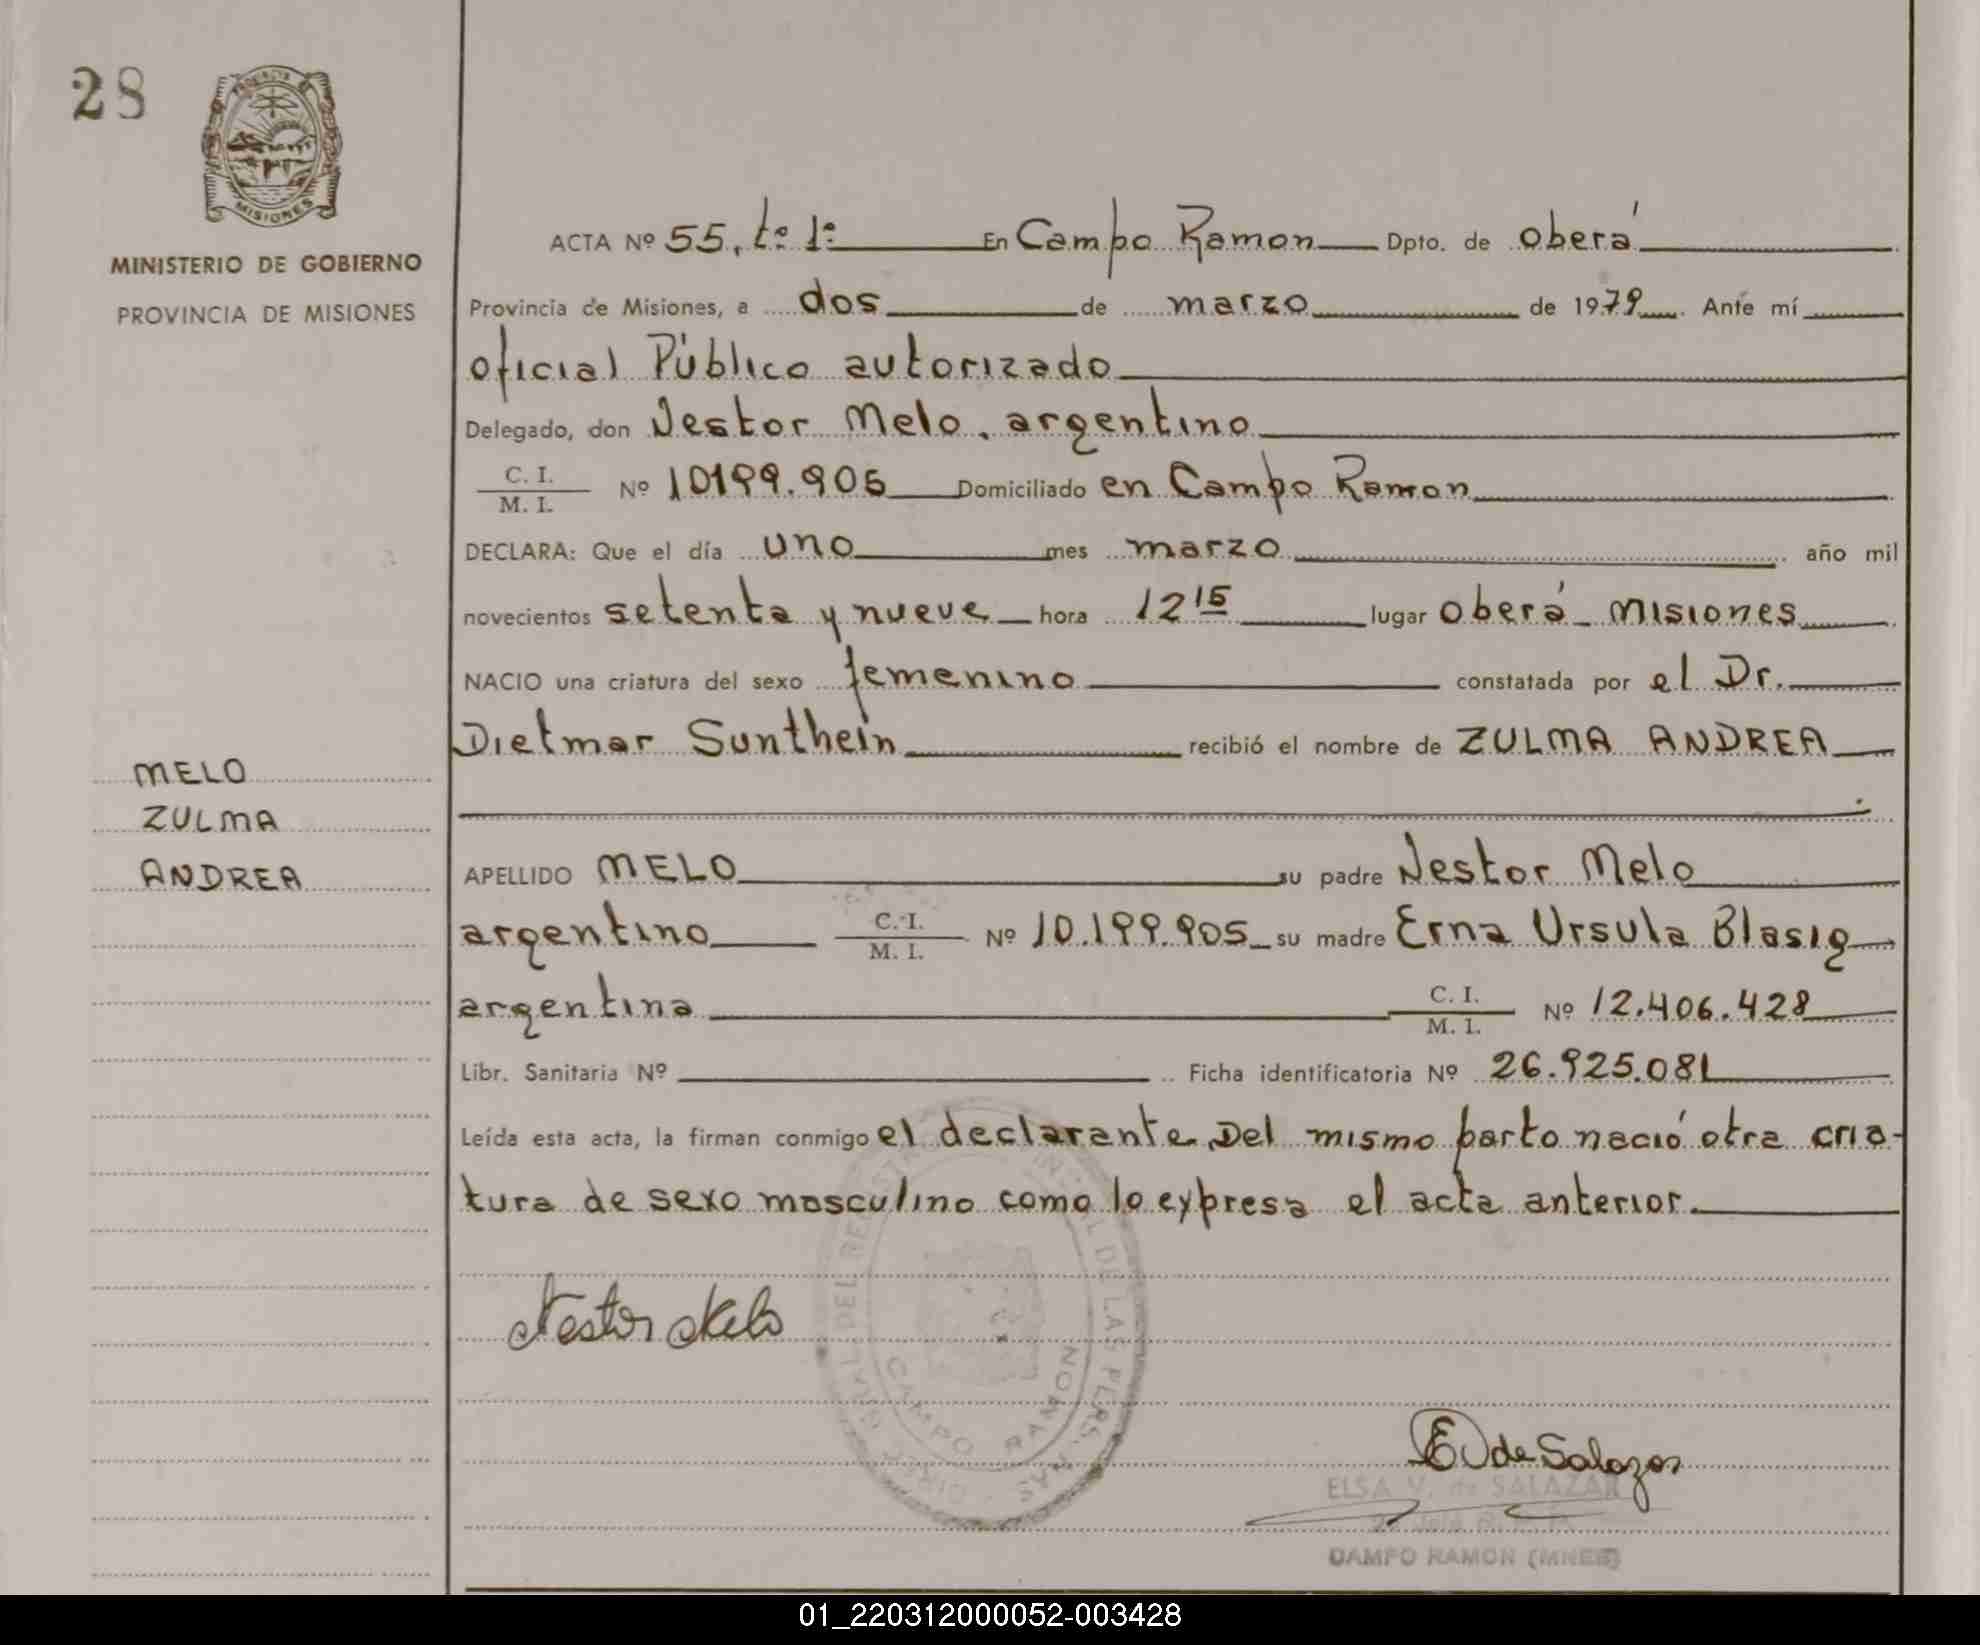 28
PROVINCIA
MISIONES
MINISTERIO DE GOBIERNO
PROVINCIA DE MISIONES
MELO
ZULMA
ANDREA
ACTA Nº 55, tº 1º En Campo Ramon Dpto. de oberá
Provincia de Misiones, a dos de marzo de 1979. Ante mí
oficial Público autorizado
Delegado, don Nestor Melo. argentino
C. I.
M. I. Nº 10199.905 Domiciliado en Campo Ramon
DECLARA: Que el día uno mes marzo año mil
novecientos setenta y nueve hora 12 15 lugar oberá misiones
NACIO una criatura del sexo femenino constatada por el Dr.
Dietmar Sunthein recibió el nombre de ZULMA ANDREA
APELLIDO MELO su padre Nestor Melo
argentino C. I.
M. I. Nº 10.199.905 su madre Erna Ursula Blasig
argentina C. I.
M. I. Nº 12.406.428
Libr. Sanitaria Nº Ficha identificatoria Nº 26.925.081
Leída esta acta, la firman conmigo el declarante. Del mismo parto nació otra cria-
tura de sexo masculino como lo expresa el acta anterior.
Nestor Melo
DEL REGISTRO
DE LAS PERS.
CAMPO RAMON
E V de Salazar
ELSA V. de SALAZAR
CAMPO RAMON (MNES)
01_220312000052-003428